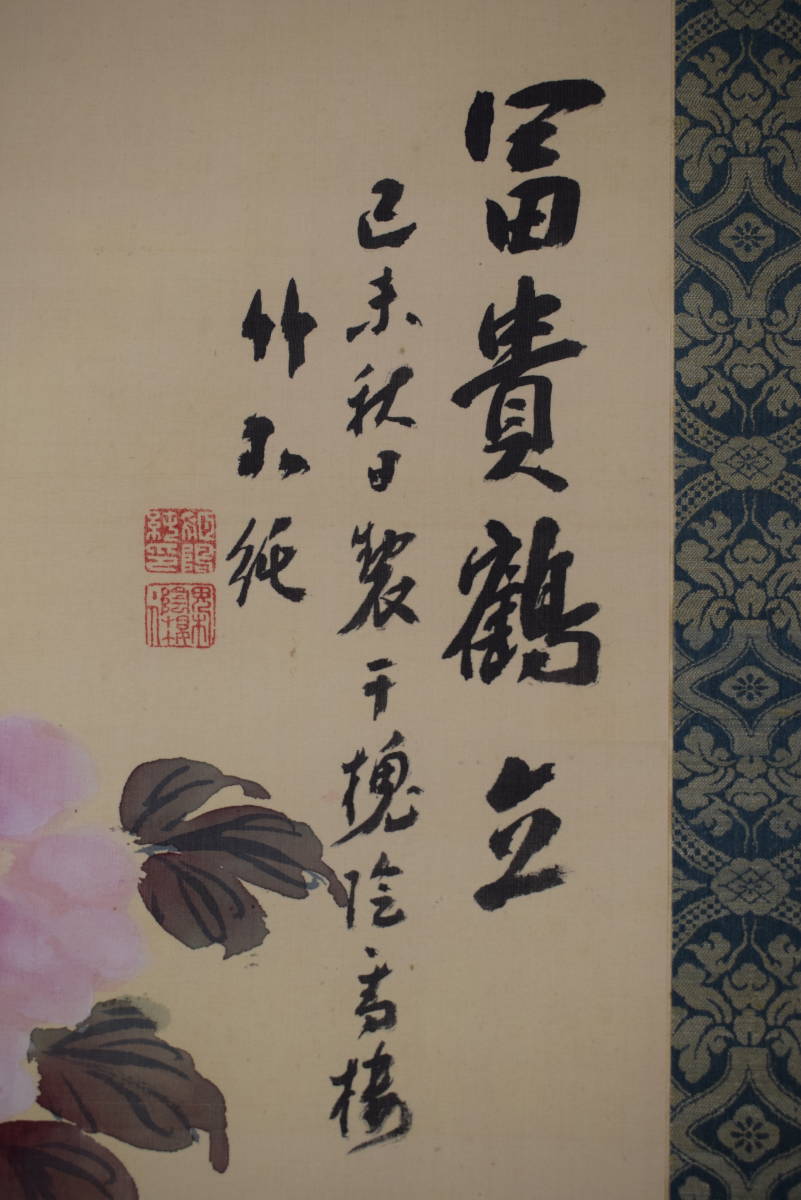 冨貴鶴立
己未秋日製于槐陰書楼
竹外純